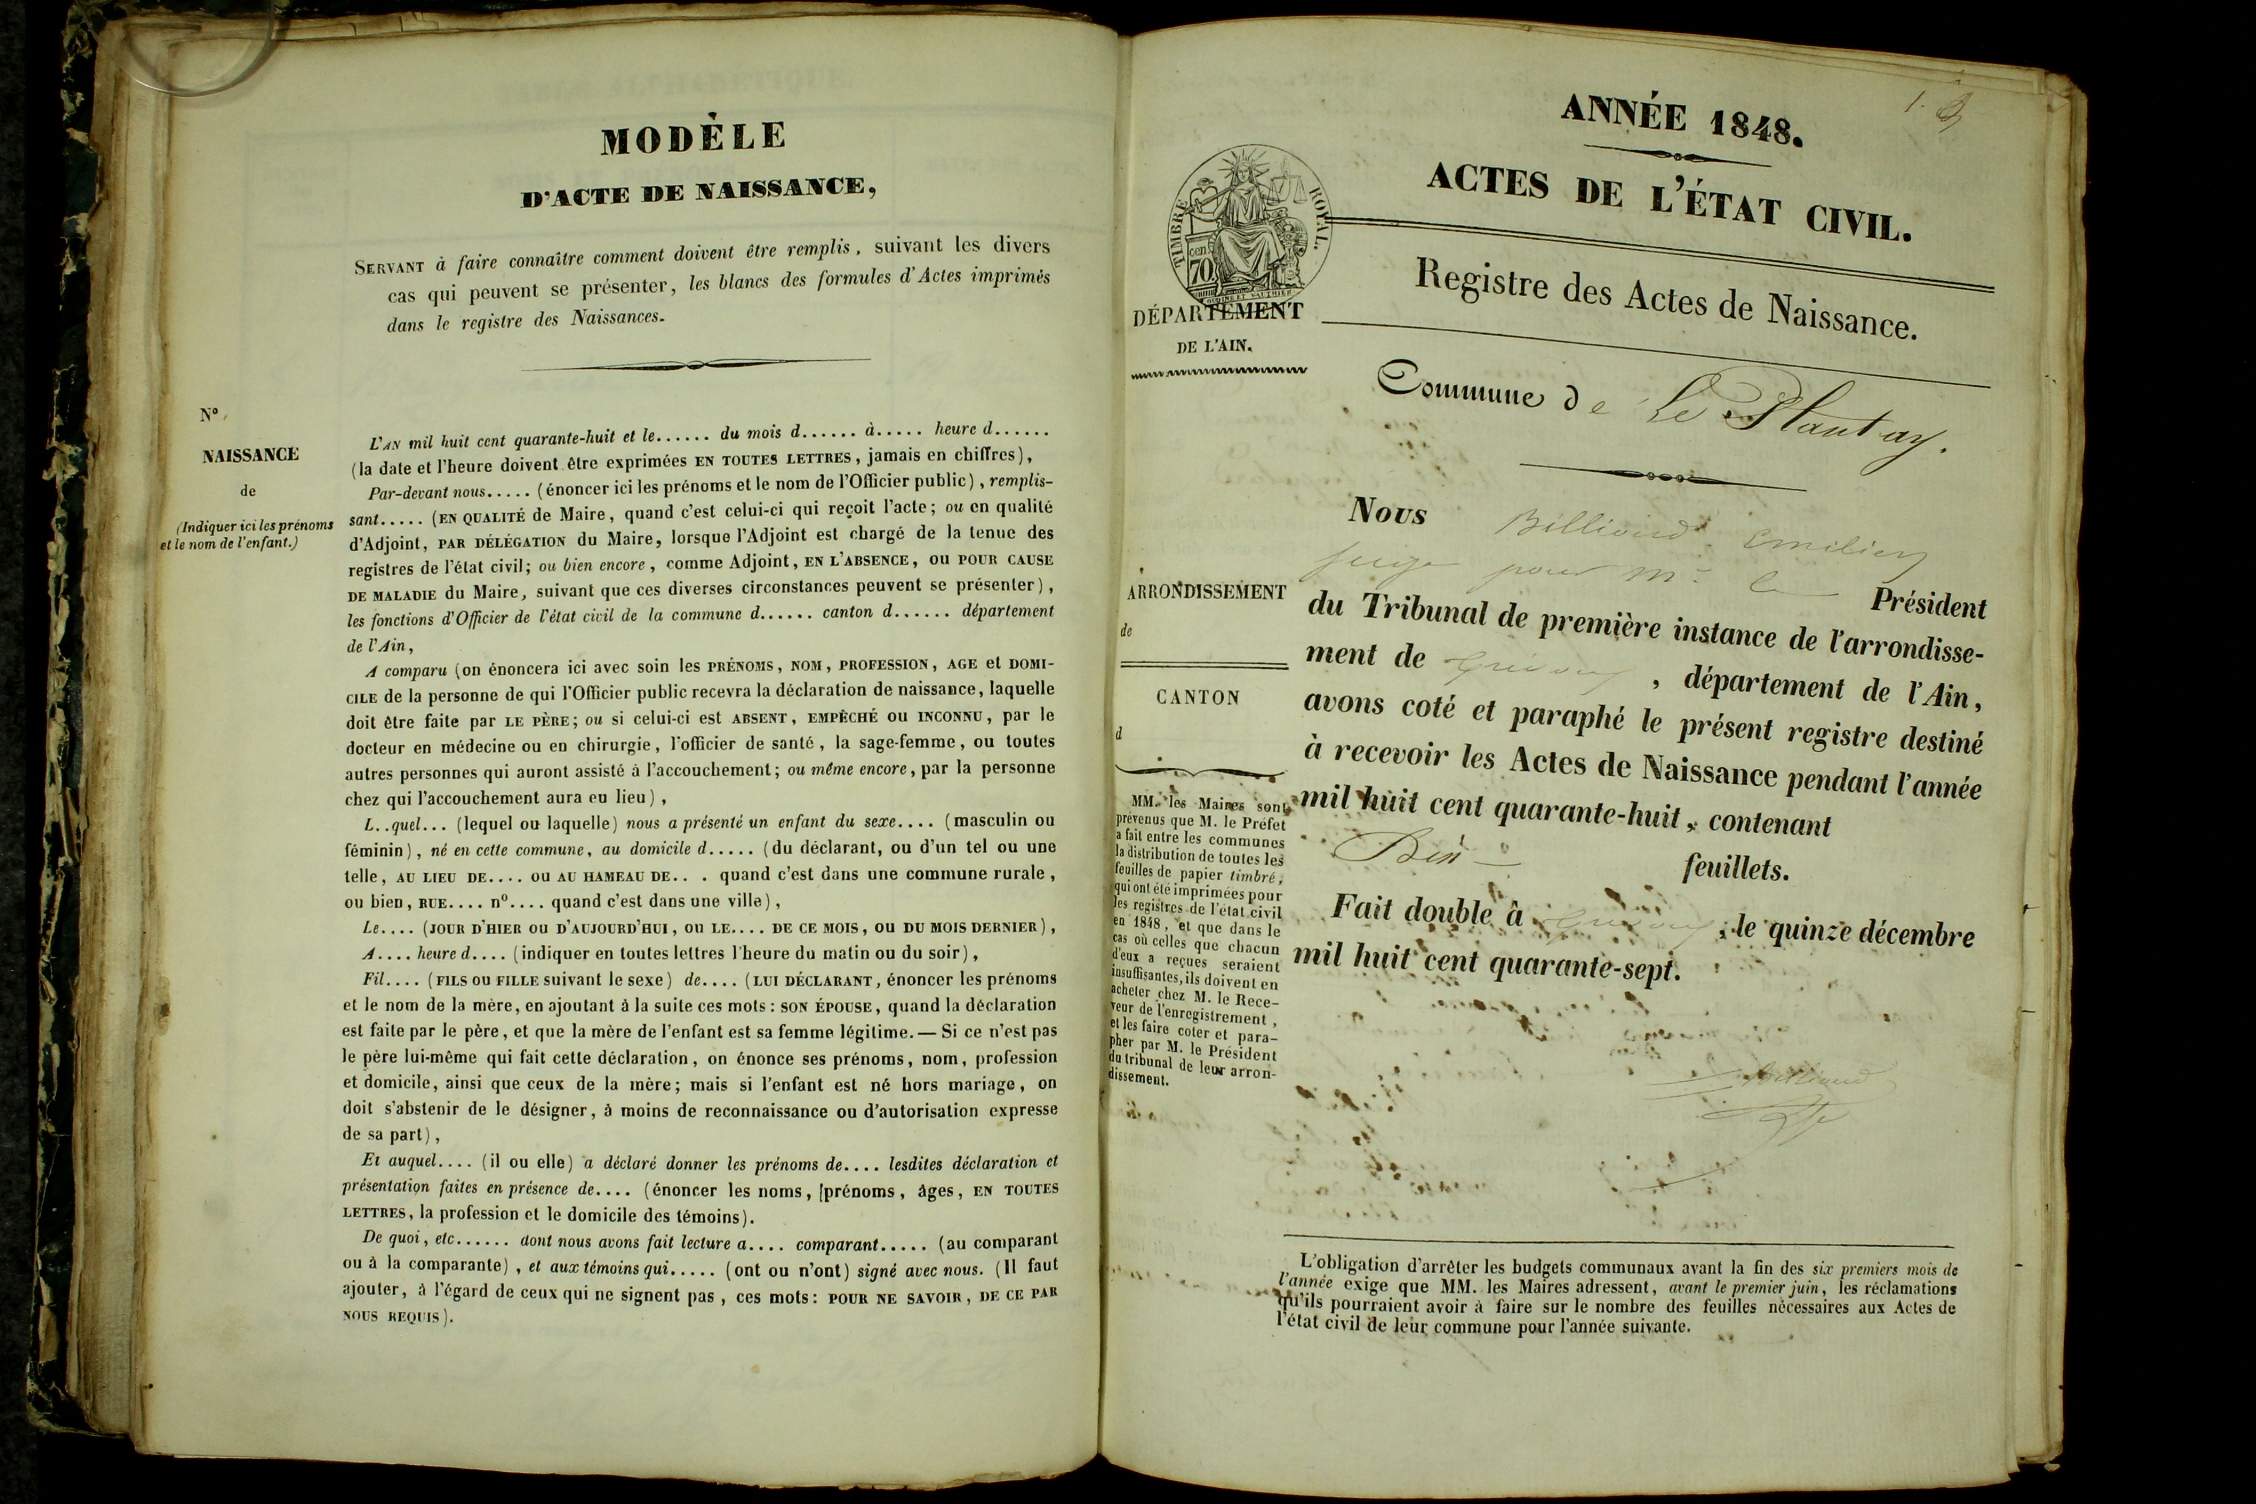 MODÈLE
D'ACTE DE NAISSANCE,
SERVANT à faire connaître comment doivent être remplis, suivant les divers
cas qui peuvent se présenter, les blancs des formules d'Actes imprimés
dans le registre des Naissances.
N°
NAISSANCE
de
(Indiquer ici les prénoms
et le nom de l'enfant.)
L'AN mil huit cent quarante-huit et le...... du mois d...... à..... heure d......
(la date et l'heure doivent être exprimées EN TOUTES LETTRES, jamais en chiffres),
Par-devant nous..... (énoncer ici les prénoms et le nom de l'Officier public), remplis-
sant..... (EN QUALITÉ de Maire, quand c'est celui-ci qui reçoit l'acte; ou en qualité
d'Adjoint, PAR DÉLÉGATION du Maire, lorsque l'Adjoint est chargé de la tenue des
registres de l'état civil; ou bien encore, comme Adjoint, EN L'ABSENCE, OU POUR CAUSE
DE MALADIE du Maire, suivant que ces diverses circonstances peuvent se présenter),
les fonctions d'Officier de l'état civil de la commune d...... canton d...... département
de l'Ain,
A comparu (on énoncera ici avec soin les PRÉNOMS, NOM, PROFESSION, AGE et DOMI-
CILE de la personne de qui l'Officier public recevra la déclaration de naissance, laquelle
doit être faite par LE PÈRE; ou si celui-ci est ABSENT, EMPÊCHÉ ou INCONNU, par le
docteur en médecine ou en chirurgie, l'officier de santé, la sage-femme, ou toutes
autres personnes qui auront assisté à l'accouchement; ou même encore, par la personne
chez qui l'accouchement aura eu lieu),
L..quel... (lequel ou laquelle) nous a présenté un enfant du sexe.... (masculin ou
féminin), né en cette commune, au domicile d..... (du déclarant, ou d'un tel ou une
telle, AU LIEU DE.... OU AU HAMEAU DE.. . quand c'est dans une commune rurale,
ou bien, RUE.... n°.... quand c'est dans une ville),
Le.... (JOUR D'HIER OU D'AUJOURD'HUI, OU LE.... DE CE MOIS, OU DU MOIS DERNIER),
A.... heure d.... (indiquer en toutes lettres l'heure du matin ou du soir),
Fil.... (FILS OU FILLE suivant le sexe) de.... (LUI DÉCLARANT, énoncer les prénoms
et le nom de la mère, en ajoutant à la suite ces mots: SON ÉPOUSE, quand la déclaration
est faite par le père, et que la mère de l'enfant est sa femme légitime. — Si ce n'est pas
le père lui-même qui fait cette déclaration, on énonce ses prénoms, nom, profession
et domicile, ainsi que ceux de la mère; mais si l'enfant est né hors mariage, on
doit s'abstenir de le désigner, à moins de reconnaissance ou d'autorisation expresse
de sa part),
Et auquel.... (il ou elle) a déclaré donner les prénoms de.... lesdites déclaration et
présentation faites en présence de.... (énoncer les noms, [prénoms, âges, EN TOUTES
LETTRES, la profession et le domicile des témoins).
De quoi, etc...... dont nous avons fait lecture a.... comparant..... (au comparant
ou à la comparante), et aux témoins qui..... (ont ou n'ont) signé avec nous. (Il faut
ajouter, à l'égard de ceux qui ne signent pas, ces mots: POUR NE SAVOIR, DE CE PAR
NOUS REQUIS).
ANNÉE 1848.
ACTES DE L'ÉTAT CIVIL.
TIMBRE ROYAL.
cen
70
Registre des Actes de Naissance.
DÉPARTEMENT
DE L'AIN.
Commune de Le Plantay.
Nous Billioud Emilien
juge pour Mr. le Président
du Tribunal de première instance de l'arrondisse-
ment de Trévoux, département de l'Ain,
avons coté et paraphé le présent registre destiné
à recevoir les Actes de Naissance pendant l'année
mil huit cent quarante-huit, contenant
feuillets.
Fait double à Trévoux, le quinze décembre
mil huit cent quarante-sept.
Billioud
ARRONDISSEMENT
de
CANTON
d
MM. les Maires sont
prévenus que M. le Préfet
a fait entre les communes
la distribution de toutes les
feuilles de papier timbré,
qui ont été imprimées pour
les registres de l'état civil
en 1848, et que dans le
cas où celles que chacun
d'eux a reçues seraient
insuffisantes, ils doivent en
acheter chez M. le Rece-
veur de l'enregistrement,
et les faire coter et para-
pher par M. le Président
du tribunal de leur arron-
dissement.
L'obligation d'arrêter les budgets communaux avant la fin des six premiers mois de
l'année exige que MM. les Maires adressent, avant le premier juin, les réclamations
qu'ils pourraient avoir à faire sur le nombre des feuilles nécessaires aux Actes de
l'état civil de leur commune pour l'année suivante.